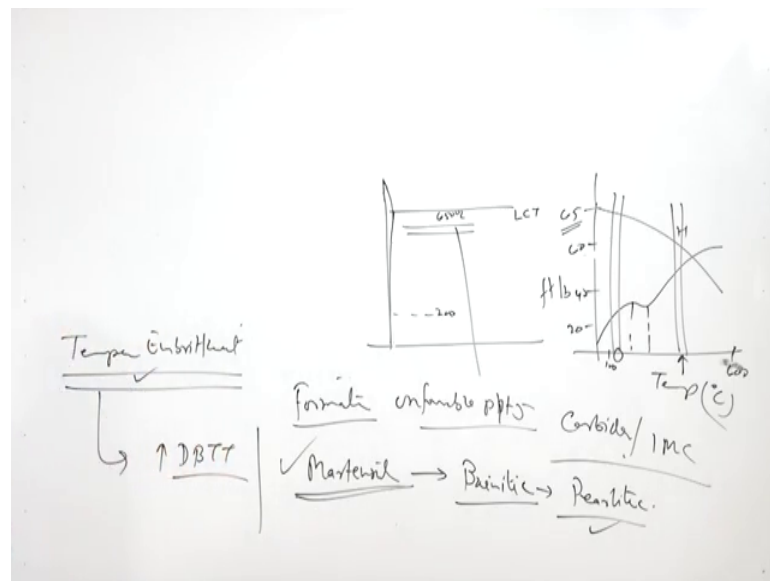 650°C
LCT
65
60
ft lb 40
20
200
100
600
Temp (°C)
Temper Embrittlement
↑ DBTT
Formation
Carbide / IMC
Martensite → Bainitic → Pearlitic.